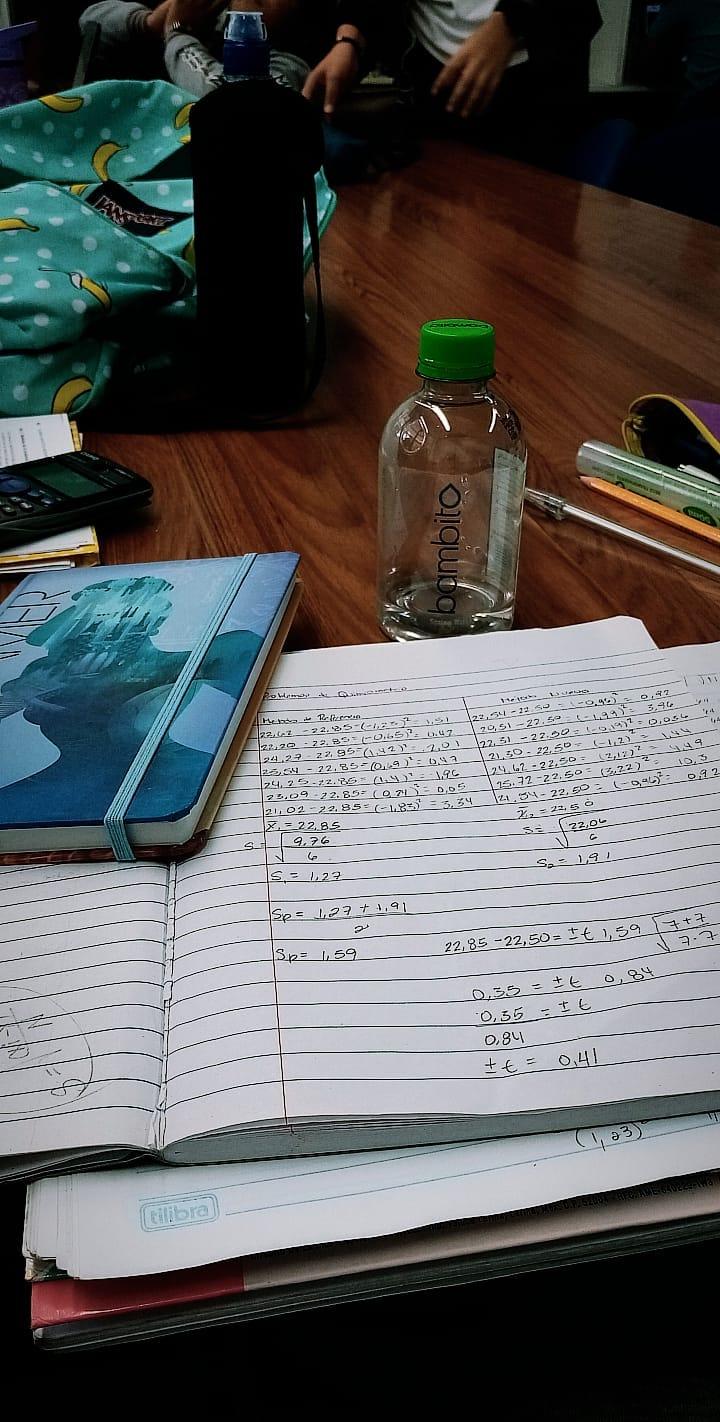 JANSPORT
bambito
Problemas de Quimiometria
Metodo de Referencia
22,62 - 22,85=(-1,23)² = 1,51
22,20 - 22,85=(-0,65)² = 0,42
24,27 - 22,85=(1,42)² = 2,01
23,54 - 22,85=(0,69)² = 0,47
24,25 - 22,85=(1,4)² = 1,96
23,09 - 22,85=(0,24)² = 0,05
21,02 - 22,85=(-1,83)² = 3,34
X̄₁ = 22,85
S= √ 9,76
6
S₁ = 1,27
Sp = 1,27 + 1,91
2
Sp = 1,59
Metodo Nuevo
22,54 - 22,50 = (-0,96)² = 0,92
20,51 - 22,50 = (-1,99)² = 3,96
22,31 - 22,50 = (-0,19)² = 0,036
21,30 - 22,50 = (-1,2)² = 1,44
24,62 - 22,50= (2,12)² = 4,49
25,72 - 22,50= (3,22)² = 10,3
21,54 - 22,50= (-0,96)² = 0,92
X̄₂ = 22,50
S= √ 22,06
6
S₂ = 1,91
22,85 - 22,50 = ± t 1,59 √ 7+7
7·7
0,35 = ± t 0,84
0,35 = ± t
0,84
± t = 0,41
(1,23)²
tilibra